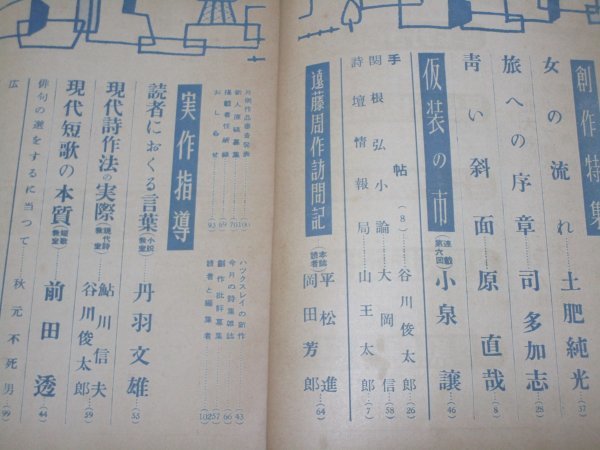 創作特集
女の流れ……土肥純光……(37)
旅への序章……司多加志……(28)
青い斜面……原直哉……(8)
仮装の市 (連載第六回) 小泉譲……(46)
手帖(8)……谷川俊太郎……(26)
関根弘小論……大岡信……(58)
詩壇情報局……山王太郎……(7)
遠藤周作訪問記 (本誌読者) 平松進 岡田芳郎……(64)
ハックスレイの新作……(43)
今月の詩集雑誌……(66)
創作批評募集……(57)
読者と編集者……(102)
新人原稿募集……(70)
掲載者住所録……(69)
おしらせ……(93)
実作指導
読者におくる言葉 (小説教室) 丹羽文雄……(53)
現代詩作法の実際 (現代詩教室) 鮎川信夫 谷川俊太郎……(59)
現代短歌の本質 (短歌教室) 前田透……(44)
俳句の選をするに当つて……秋元不死男……(99)
広